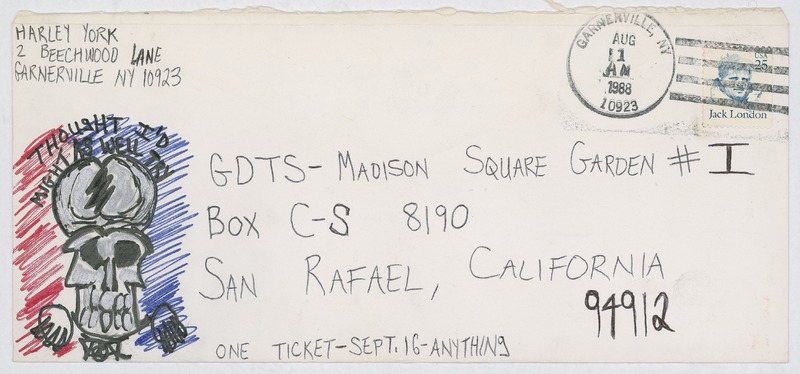 HARLEY YORK
2 BEECHWOOD LANE
GARNERVILLE NY 10923
GARNERVILLE, NY
AUG
11
AM
1988
10923
USA
25
Jack London
THOUGHT I'D
MIGHT AS WELL TRY
GDTS- MADISON SQUARE GARDEN # I
BOX C-S 8190
SAN RAFAEL, CALIFORNIA
94912
ONE TICKET-SEPT. 16-ANYTHING